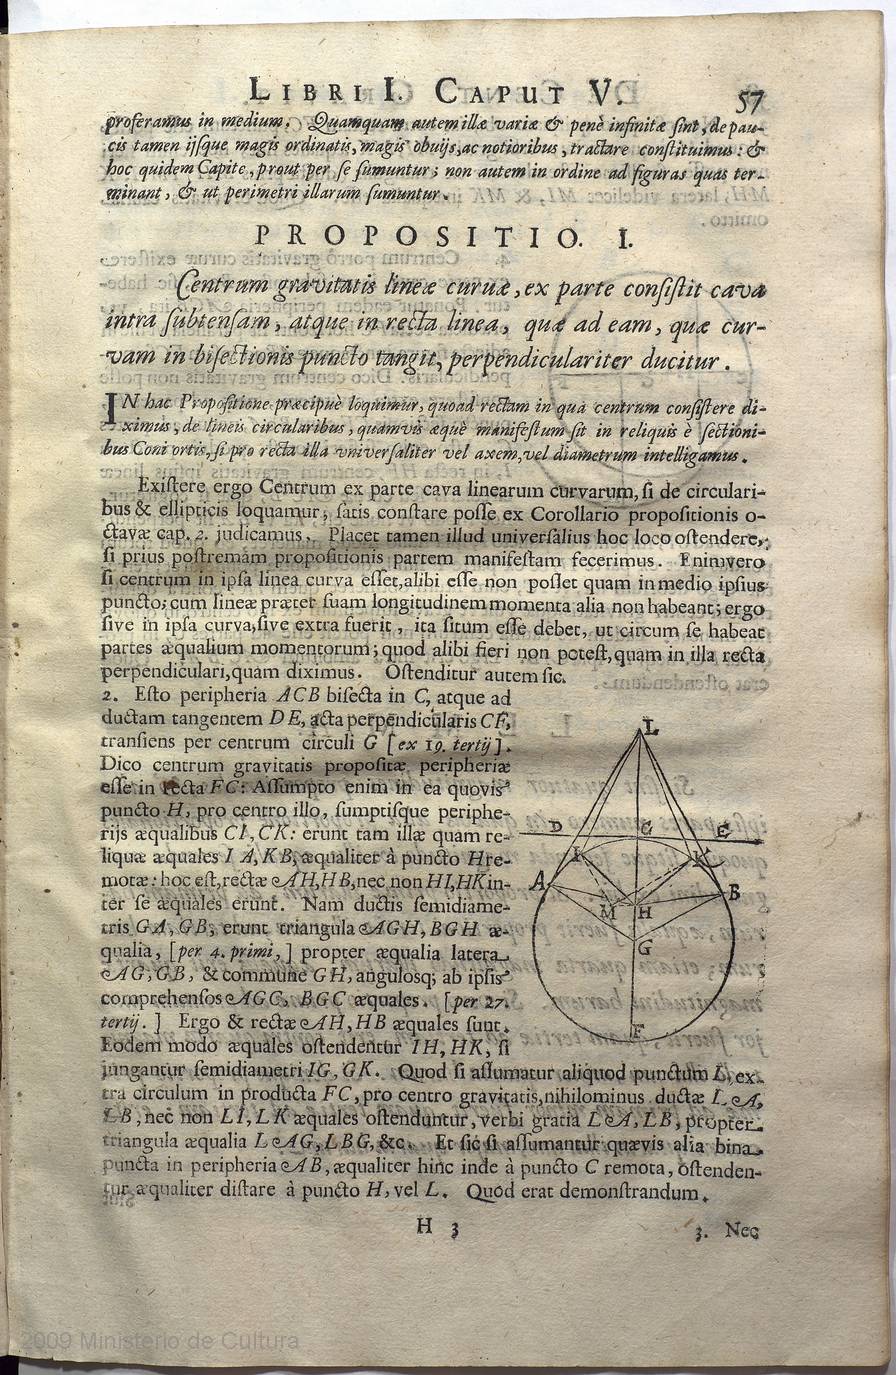 LIBRI I. CAPUT V. 57
proferamus in medium. Quamquam autem illæ variæ & penè infinitæ ſint, de pau-
cis tamen ijſque magis ordinatis, magis obuijs, ac notioribus, tractare conſtituimus: &
hoc quidem Capite, prout per ſe ſumuntur; non autem in ordine ad figuras quas ter-
minant, & ut perimetri illarum ſumuntur.
PROPOSITIO. I.
Centrum gravitatis lineæ curuæ, ex parte conſiſtit cava
intra ſubtenſam, atque in recta linea, quæ ad eam, quæ cur-
vam in biſectionis puncto tangit, perpendiculariter ducitur.
IN hac Propoſitione præcipuè loquimur, quoad rectam in qua centrum conſiſtere di-
ximus, de lineis circularibus, quamvis æquè manifeſtum ſit in reliquis è ſectioni-
bus Coni ortis, ſi pro recta illa vniverſaliter vel axem, vel diametrum intelligamus.
Exiſtere ergo Centrum ex parte cava linearum curvarum, ſi de circulari-
bus & ellipticis loquamur, ſatis conſtare poſſe ex Corollario propoſitionis o-
ctavæ cap. 2. judicamus. Placet tamen illud univerſalius hoc loco oſtendere,
ſi prius poſtremam propoſitionis partem manifeſtam fecerimus. Enimvero
ſi centrum in ipſa linea curva eſſet, alibi eſſe non poſſet quam in medio ipſius
puncto; cum lineæ præter ſuam longitudinem momenta alia non habeant; ergo
ſive in ipſa curva, ſive extra fuerit, ita ſitum eſſe debet, ut circum ſe habeat
partes æqualium momentorum; quod alibi fieri non poteſt, quam in illa recta
perpendiculari, quam diximus. Oſtenditur autem ſic.
2. Eſto peripheria ACB biſecta in C, atque ad
ductam tangentem DE, acta perpendicularis CF,
tranſiens per centrum circuli G [ex 19. tertij].
Dico centrum gravitatis propoſitæ peripheriæ
eſſe in recta FC: Aſſumpto enim in ea quovis
puncto H, pro centro illo, ſumptiſque periphe-
rijs æqualibus CI, CK: erunt tam illæ quam re-
liquæ æquales IA, KB, æqualiter à puncto H re-
motæ: hoc eſt, rectæ AH, HB, nec non HI, HK in-
ter ſe æquales erunt. Nam ductis ſemidiame-
tris GA, GB, erunt triangula AGH, BGH æ-
qualia, [per 4. primi,] propter æqualia latera
AG, GB, & commune GH, anguloſq; ab ipſis
comprehenſos AGC, BGC æquales. [per 27.
tertij.] Ergo & rectæ AH, HB æquales ſunt.
Eodem modo æquales oſtendentur IH, HK, ſi
jungantur ſemidiametri IG, GK. Quod ſi aſſumatur aliquod punctum L, ex-
tra circulum in producta FC, pro centro gravitatis, nihilominus ductæ LA,
LB, nec non LI, LK æquales oſtenduntur, verbi gratia LA, LB, propter
triangula æqualia LAG, LBG, &c. Et ſic ſi aſſumantur quævis alia bina
puncta in peripheria AB, æqualiter hinc inde à puncto C remota, oſtenden-
tur æqualiter diſtare à puncto H, vel L. Quod erat demonſtrandum.
L
D G E
I K
A B
M H
G
F
H 3 3. Nec
2009 Ministerio de Cultura